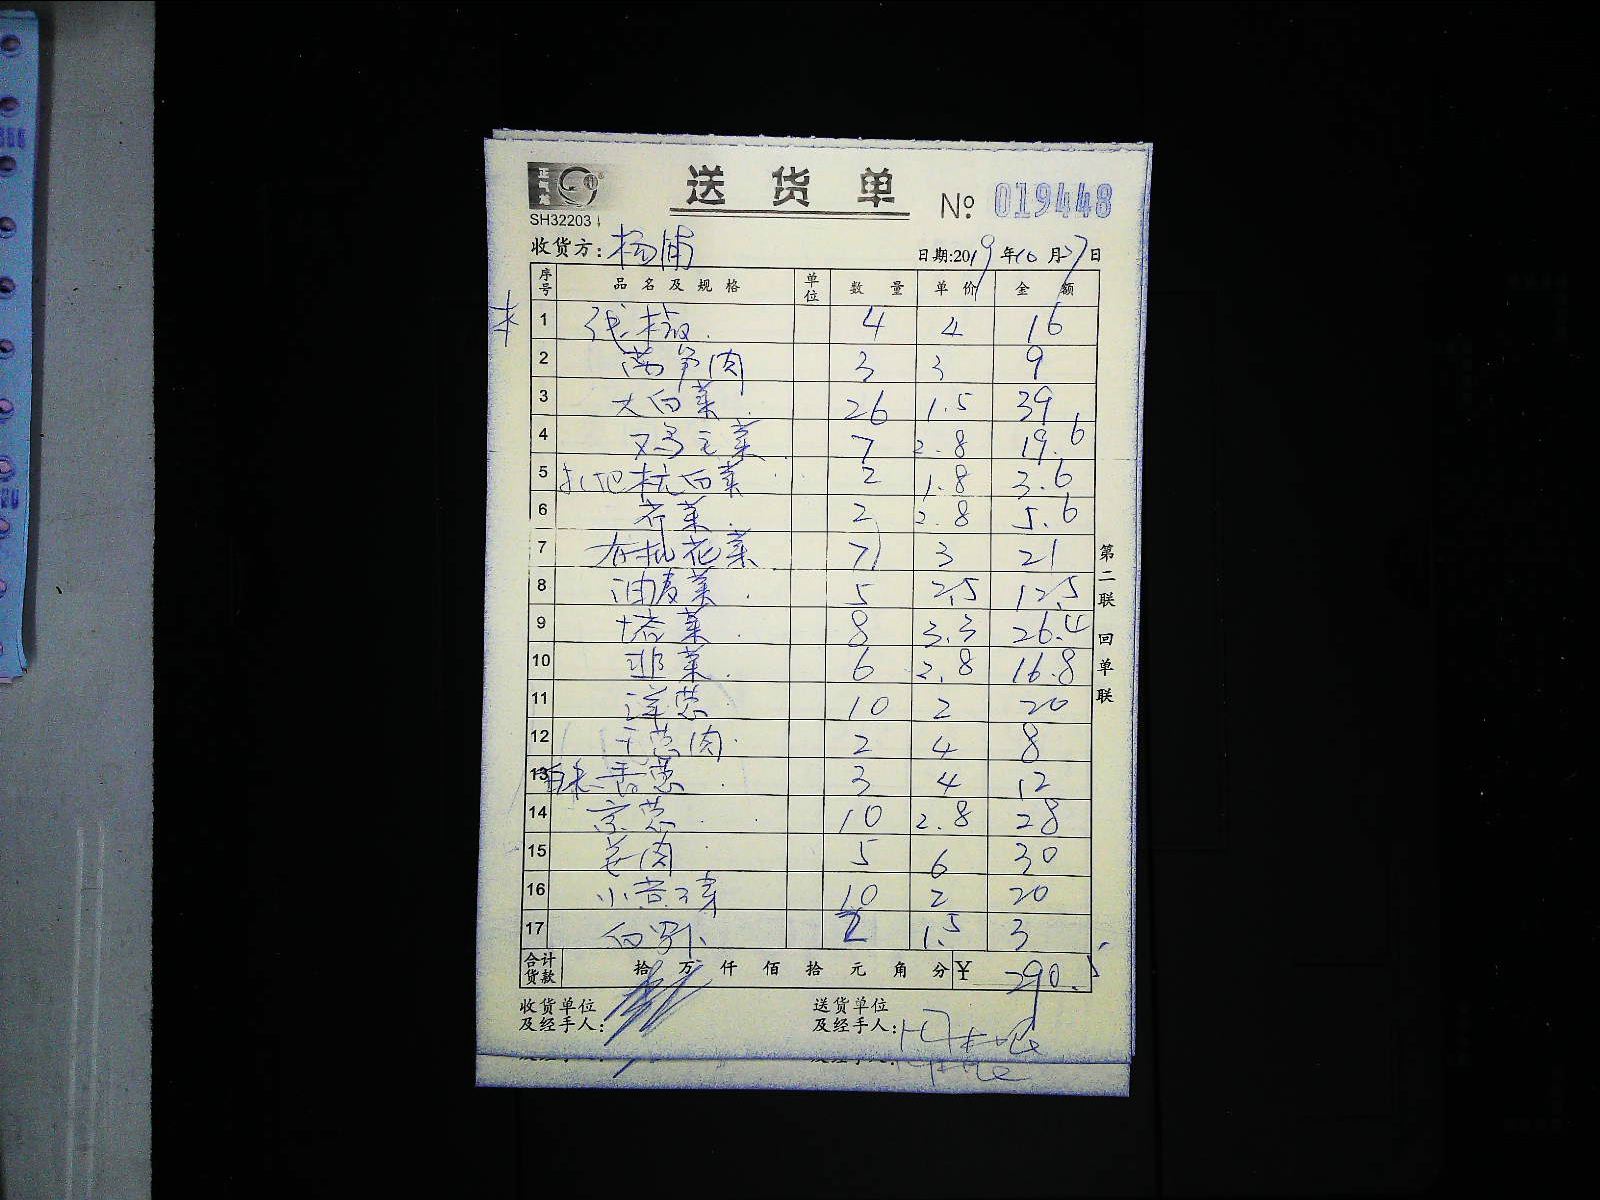 正气龙
SH32203
送货单
№ 019448
收货方: 杨浦
日期:2019年10月27日
序号 品名及规格 单位 数量 单价 金额
1 线椒 4 4 16
2 莴笋肉 3 3 9
3 大白菜 26 1.5 39
4 鸡毛菜 7 2.8 19.6
5 杭白菜 2 1.8 3.6
6 芹菜 2 2.8 5.6
7 有机花菜 7 3 21
8 油麦菜 5 2.5 12.5
9 塔菜 8 3.3 26.4
10 韭菜 6 2.8 16.8
11 洋葱 10 2 20
12 干葱肉 2 4 8
13 香葱 3 4 12
14 京葱 10 2.8 28
15 姜肉 5 6 30
16 小黄芽 10 2 20
17 白萝卜 2 1.5 3
合计货款 拾万仟佰拾元角分 ¥ 290.5
收货单位及经手人:
送货单位及经手人:
第二联 回单联